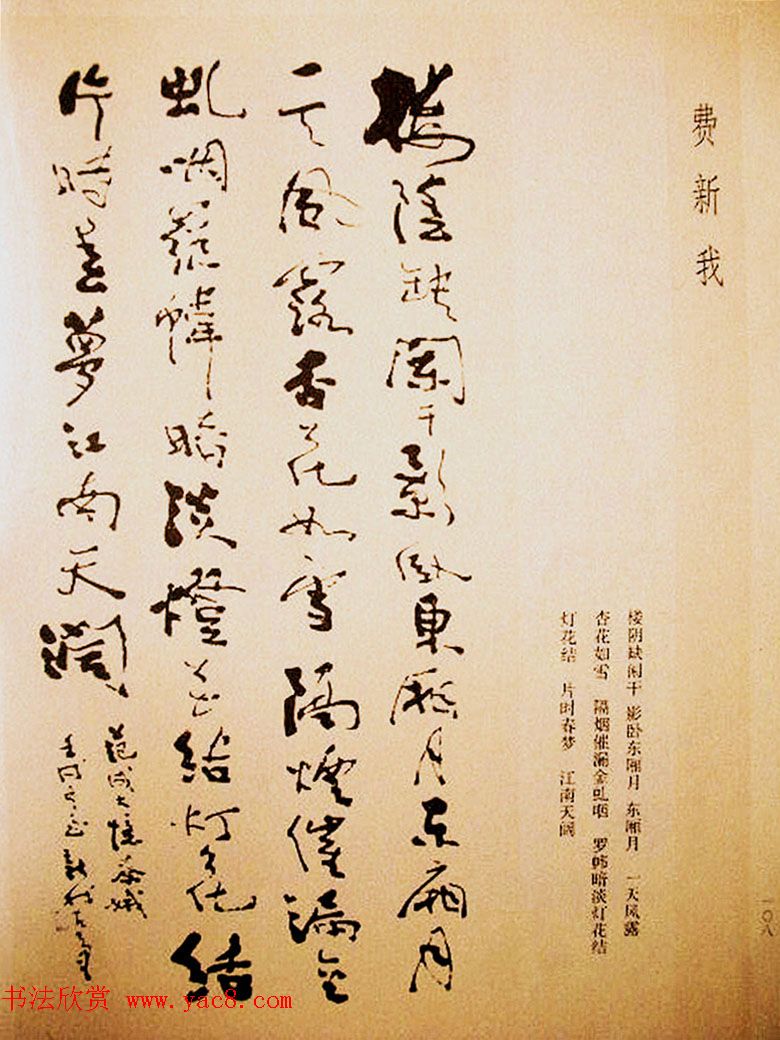 费新我
樓陰缺闌干影臥東厢月东廂月
一天風露杏花如雪隔煙催漏金
虬咽羅幃暗淡燈花結灯花結
片時春夢江南天闊
范成大憶秦娥
壬戌 新我左筆
楼阴缺闲干 影卧东厢月 东厢月 一天风露
杏花如雪 隔烟催漏金虬咽 罗帏暗淡灯花结
灯花结 片时春梦 江南天阔
一〇八
书法欣赏 www.yac8.com